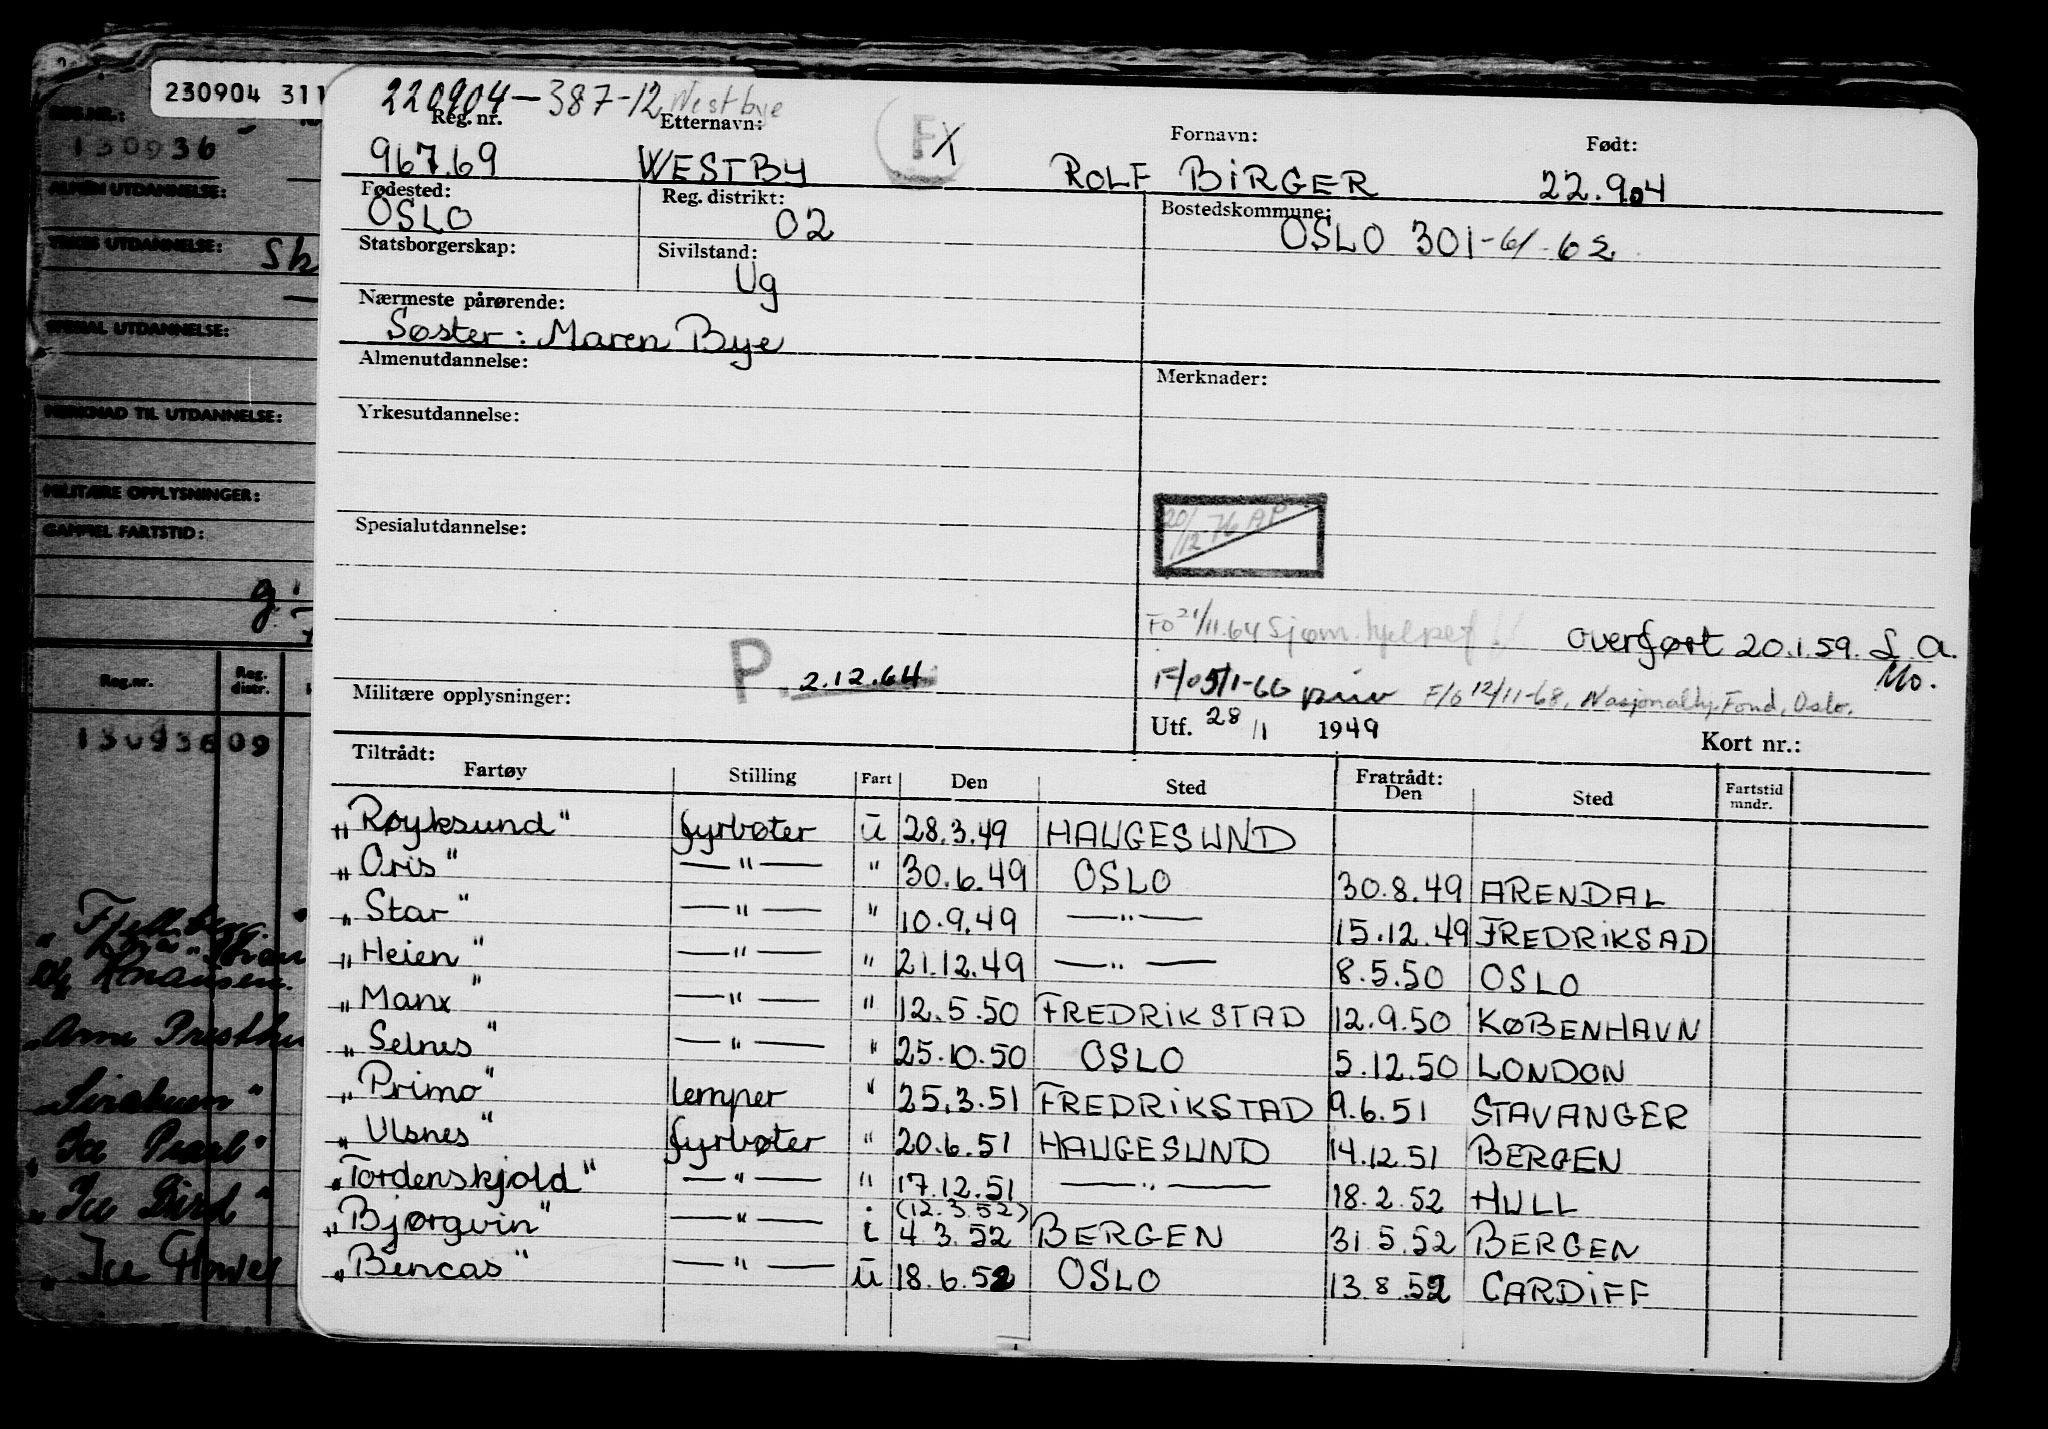 230904 311
REG.NR.:
130936
ALMEN UTDANNELSE:
YRKES UTDANNELSE:
SPESIAL UTDANNELSE:
MERKNAD TIL UTDANNELSE:
MILITÆRE OPPLYSNINGER:
GAMMEL FARTSTID:
Reg.nr. Reg. distr.
130936 09
"Ice Pearl"
"Ice Bird"
"Ice Flower
220904-387-12 Westbye
Reg. nr. Etternavn: Fornavn: Født:
96769 WESTBY FX ROLF BIRGER 22.9.04
Fødested: Reg. distrikt: Bostedskommune:
OSLO 02 OSLO 301-61-62
Statsborgerskap: Sivilstand:
Ug
Nærmeste pårørende:
Søster: Maren Bye
Almenutdannelse: Merknader:
Yrkesutdannelse:
20/12 76 AP
Spesialutdannelse:
FO 21/11.64 Sjøm.hjelpef overført 20.1.59. S.A.
Mo.
P. 2.12.64 F/o 5/1-66 priv F/o 12/11-68, Nasjonalhj.Fond, Oslo.
Militære opplysninger: Utf. 28/1 1949 Kort nr.:
Tiltrådt: Fratrådt:
Fartøy Stilling Fart Den Sted Den Sted Fartstid mndr.
"Røyksund" fyrbøter u 28.3.49 HAUGESUND
"Oris" —"— " 30.6.49 OSLO 30.8.49 ARENDAL
"Star" —"— " 10.9.49 —"— 15.12.49 FREDRIKSAD
"Heien" —"— " 21.12.49 —"— 8.5.50 OSLO
"Manx" —"— " 12.5.50 FREDRIKSTAD 12.9.50 KØBENHAVN
"Selnes" —"— " 25.10.50 OSLO 5.12.50 LONDON
"Primo" lemper " 25.3.51 FREDRIKSTAD 9.6.51 STAVANGER
"Ulsnes" fyrbøter " 20.6.51 HAUGESUND 14.12.51 BERGEN
"Tordenskjold" —"— " 17.12.51 —"— 18.2.52 HULL
(12.3.52)
"Bjørgvin" —"— i 4.3.52 BERGEN 31.5.52 BERGEN
"Bencas" —"— u 18.6.52 OSLO 13.8.52 CARDIFF